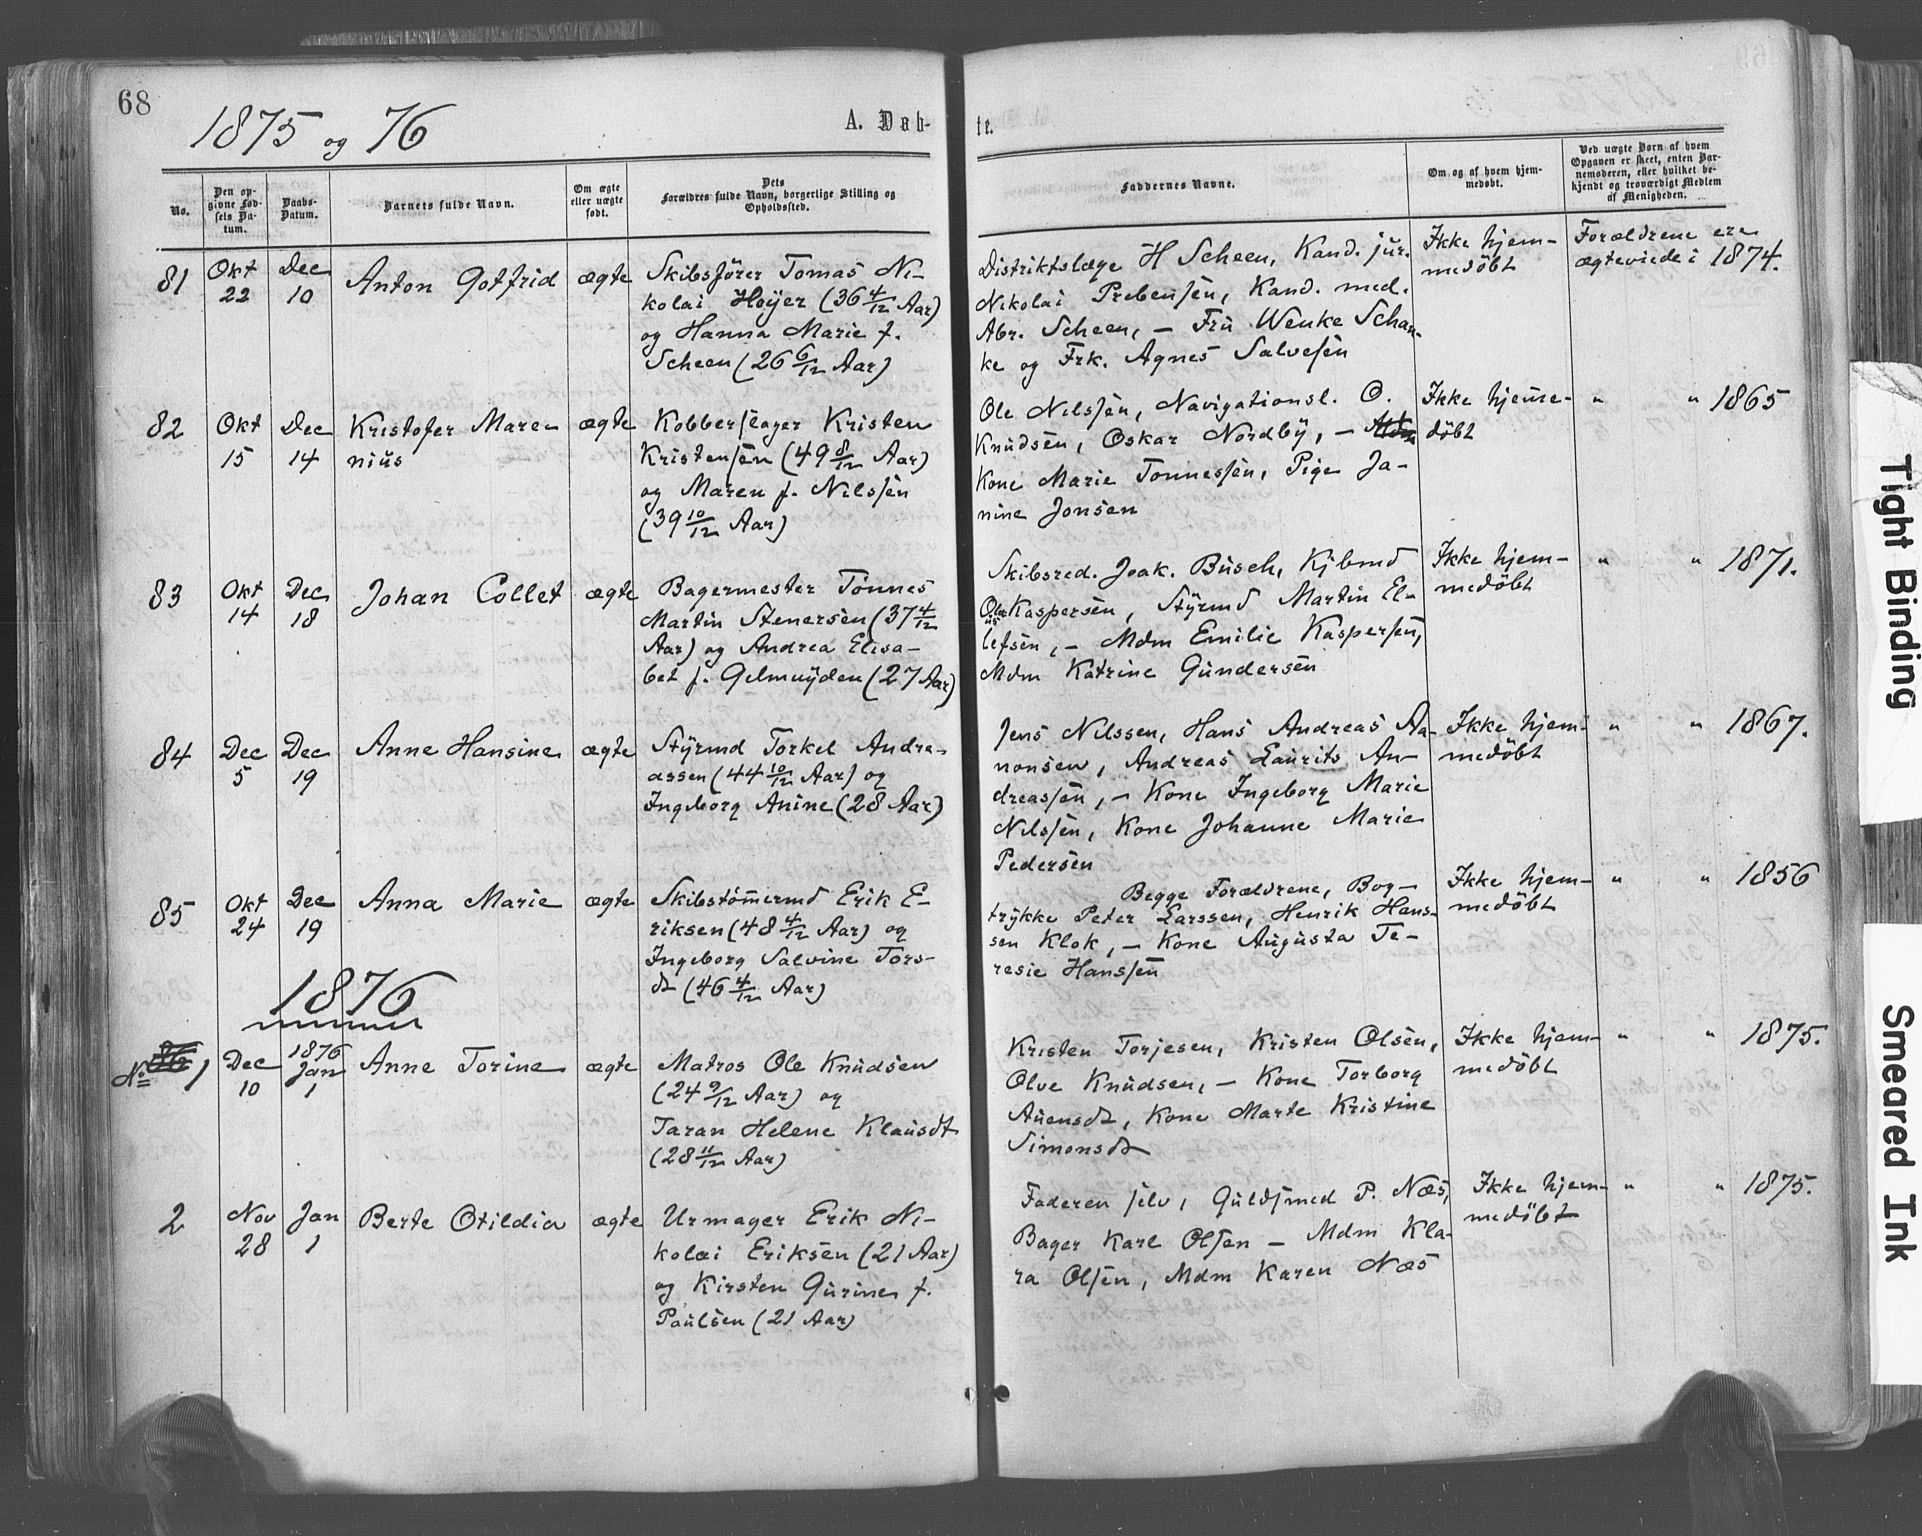 68
1875 og 76
A. Døb-
te.
No.
Den op-
givne Fød-
sels Da-
tum.
Daabs-
Datum.
Barnets fulde Navn.
Om ægte
eller uægte
født.
Dets
Forældres fulde Navn, borgerlige Stilling og
Opholdssted.
Faddernes Navne.
Om og af hvem hjem-
medøbt.
Ved uægte Børn af hvem
Opgaven er skeet, enten Bar-
nemoderen, eller hvilket be-
kjendt og troværdigt Medlem
af Menigheden.
81
Okt
22
Dec
10
Anton Gotfrid
ægte
Skibsfører Tomas Ni-
kolai Høyer (36 4/12 Aar)
og Hanna Marie f.
Scheen (26 6/12 Aar)
Distriktslæge H Scheen, Kand. jur.
Nikolai Prebensen, Kand. med.
Abr. Scheen, – Fru Wenke Schan-
ke og Frk. Agnes Salvesen
Ikke hjem-
medøbt
Forældrene ere
ægteviede i 1874.
82
Okt
15
Dec
14
Kristofer Mare-
nius
ægte
Kobberslager Kristen
Kristensen (49 8/12 Aar)
og Maren f. Nilssen
(39 10/12 Aar)
Ole Nilssen, Navigationsl. O.
Knudsen, Oskar Nordby, –
Kone Marie Tonnessen, Pige Ja-
nine Jonsen
Ikke hjemme-
døbt
" " 1865
83
Okt
14
Dec
18
Johan Collet
ægte
Bagermester Tønnes
Martin Stenersen (37 4/12
Aar) og Andrea Elisa-
bet f. Gelmuyden (27 Aar)
Skibsred. Joak. Busch, Kjbmd
Kaspersen, Styrmd Martin El-
lefsen, – Mdm Emilie Kaspersen,
Mdm Katrine Gundersen
Ikke hjem-
medøbt
" " 1871.
84
Dec
5
Dec
19
Anne Hansine
ægte
Styrmd Torkel Andre-
assen (44 10/12 Aar) og
Ingeborg Anine (28 Aar)
Jens Nilssen, Hans Andreas Aa-
nonsen, Andreas Laurits An-
dreassen, – Kone Ingeborg Marie
Nilssen, Kone Johanne Marie
Pedersen
Ikke hjem-
medøbt
" " 1867.
85
Okt
24
Dec
19
Anna Marie
ægte
Skibstømermd Erik E-
riksen (48 4/12 Aar) og
Ingeborg Salvine Tors-
dt (46 4/12 Aar)
Begge Forældrene, Bog-
trykke Peter Larssen, Henrik Hans-
sen Klok, – Kone Augusta Te-
resie Hanssen
Ikke hjem-
medøbt
" " 1856
1876
No 1
Dec
10
1876
Jan
1
Anne Torine
ægte
Matros Ole Knudsen
(24 9/12 Aar) og
Taran Helene Klausdt
(28 11/12 Aar)
Kristen Torjesen, Kristen Olsen,
Olve Knudsen, – Kone Torborg
Auensdt, Kone Marte Kristine
Simonsdt
Ikke hjem-
medøbt
" " 1875.
2
Nov
28
Jan
1
Berte Otildia
ægte
Urmager Erik Ni-
kolai Eriksen (21 Aar)
og Kirsten Gurine f.
Paulsen (21 Aar)
Faderen selv, Guldsmed P. Næs,
Bager Karl Olsen – Mdm Kla-
ra Olsen, Mdm Karen Næs
Ikke hjem-
medøbt
" " 1875.
Tight Binding
Smeared Ink